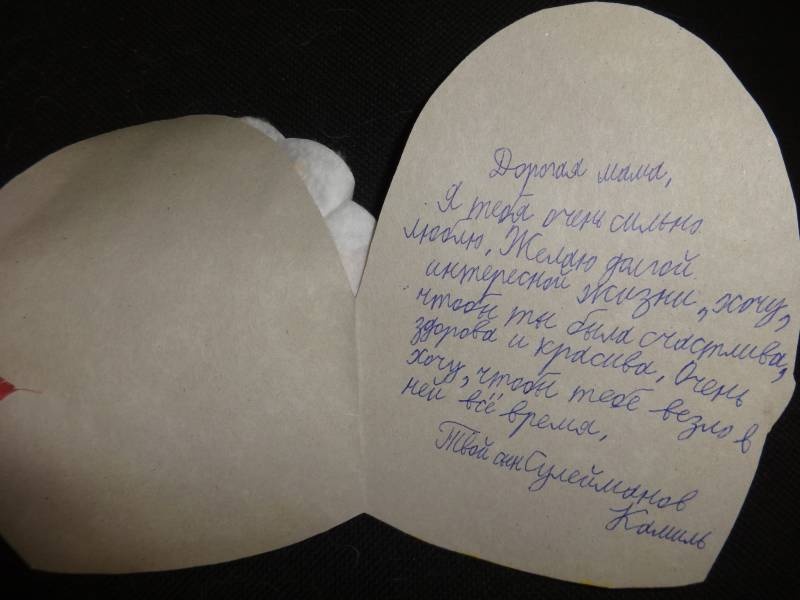 Дорогая мама,
Я тебя очень сильно
люблю, Желаю долгой
интересной жизни, хочу,
чтобы ты была счастлива,
здорова и красива, Очень
хочу, чтобы тебе везло в
ней всё время,
Твой сын Сулейманов
Камиль